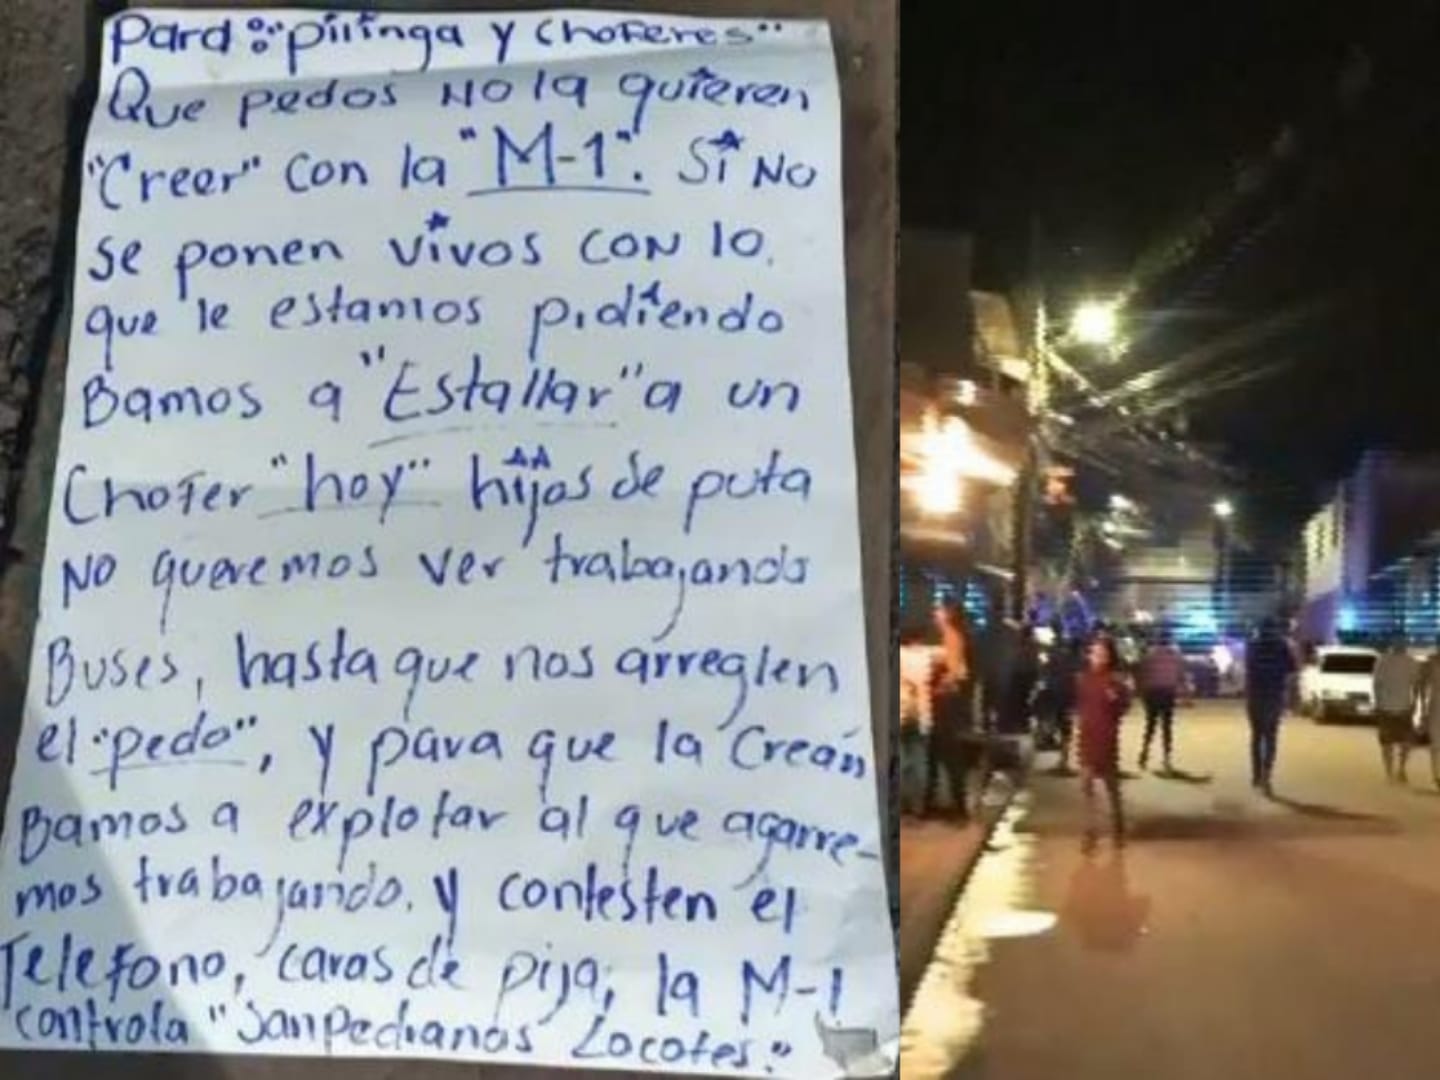 Para: "pilinga y choferes"
Que pedos No la quieren
"Creer" con la "M-1". Si No
se ponen vivos con lo
que le estamos pidiendo
Bamos a "Estallar" a un
Chofer "hoy" hijos de puta
No queremos ver trabajando
Buses, hasta que nos arreglen
el "pedo", y para que la Crean
Bamos a explotar al que agarre-
mos trabajando. y contesten el
Telefono, caras de pija, la M-1
controla "Sanpedranos Locotes."